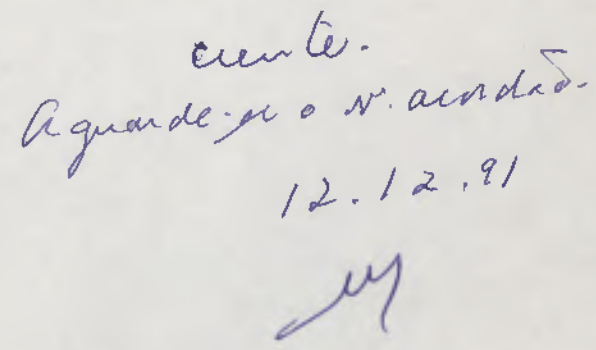 ciente.
Aguarde-se o v. acórdão.
12.12.91